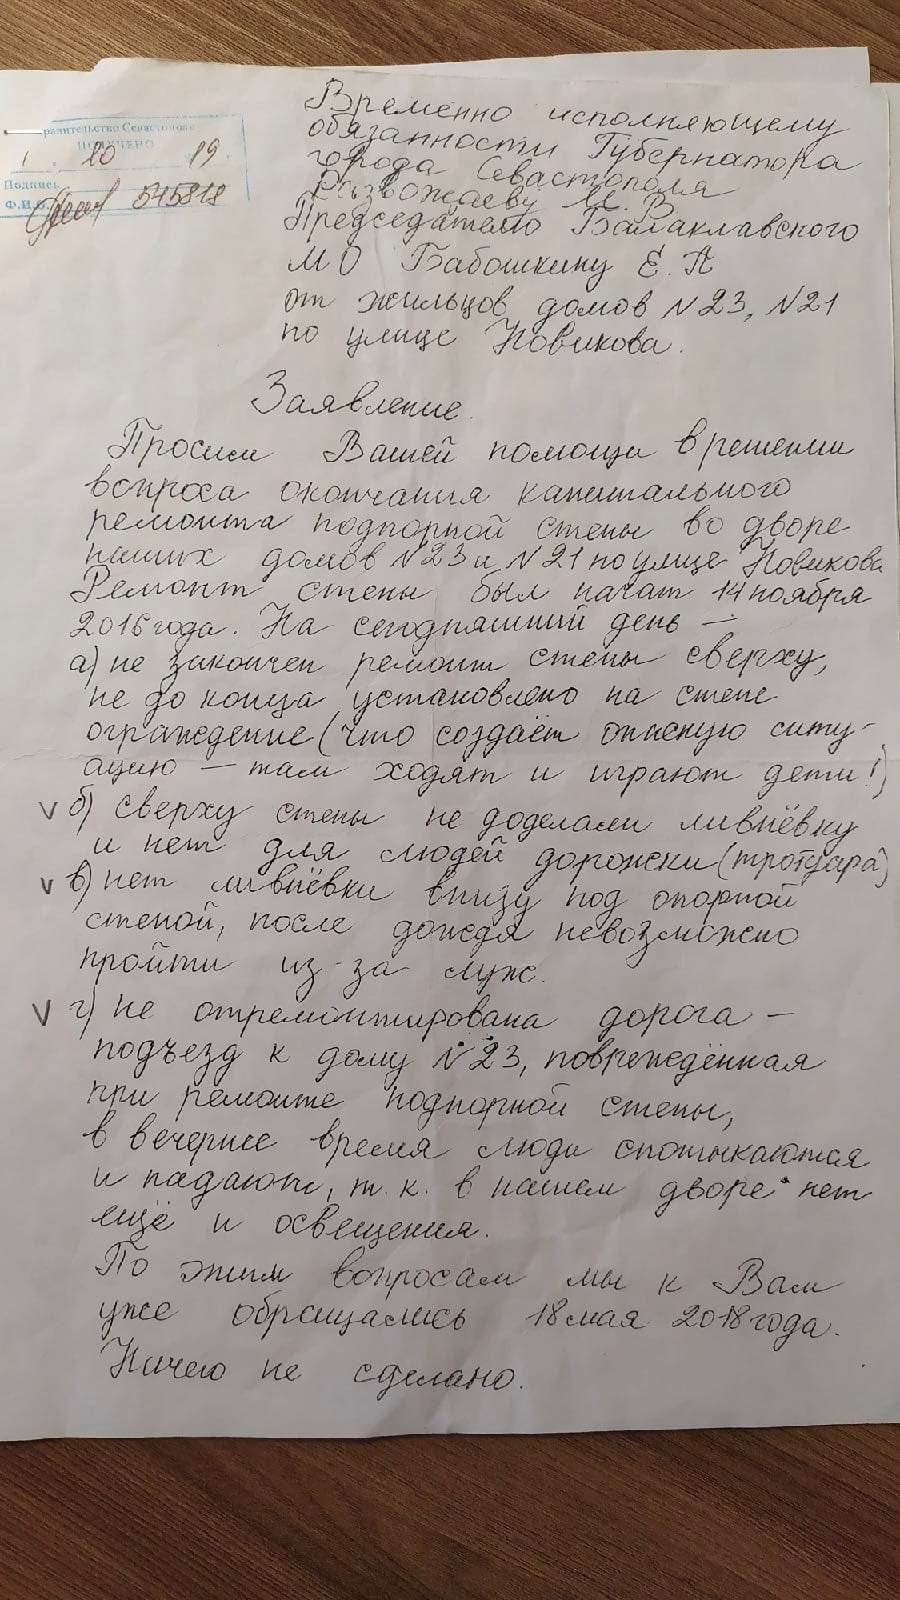 Правительство Севастополя
ПОЛУЧЕНО
1. 10 19.
Подпись
Ф.И.О. 545818
Временно исполняющему
обязанности Губернатора
города Севастополя
Развожаеву М. В
Председателю Балаклавского
МО Бабошкину Е. П
от жильцов домов №23, №21
по улице Новикова.
Заявление.
Просим Вашей помощи в решении
вопроса окончания капитального
ремонта подпорной стены во дворе
наших домов №23 и №21 по улице Новикова
Ремонт стены был начат 14 ноября
2016 года. На сегодняшний день —
а) не закончен ремонт стены сверху,
не до конца установлено на стене
ограждение (что создаёт опасную ситу-
ацию — там ходят и играют дети!)
V б) сверху стены не доделали ливнёвку
и нет для людей дорожки (тротуара)
V в) нет ливнёвки внизу под опорной
стеной, после дождя невозможно
пройти из-за луж.
V г) не отремонтирована дорога —
подъезд к дому №23, повреждённая
при ремонте подпорной стены,
в вечернее время люди спотыкаются
и падают, т. к. в нашем дворе нет
ещё и освещения.
По этим вопросам мы к Вам
уже обращались 18 мая 2018 года.
Ничего не сделано.